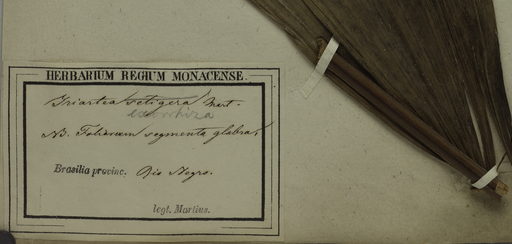 HERBARIUM REGIUM MONACENSE.
Iriartea setigera Mart.
exorrhiza
NB. Foliorum segmenta glabra,
Brasilia provinc. Rio Negro.
legt. Martius.